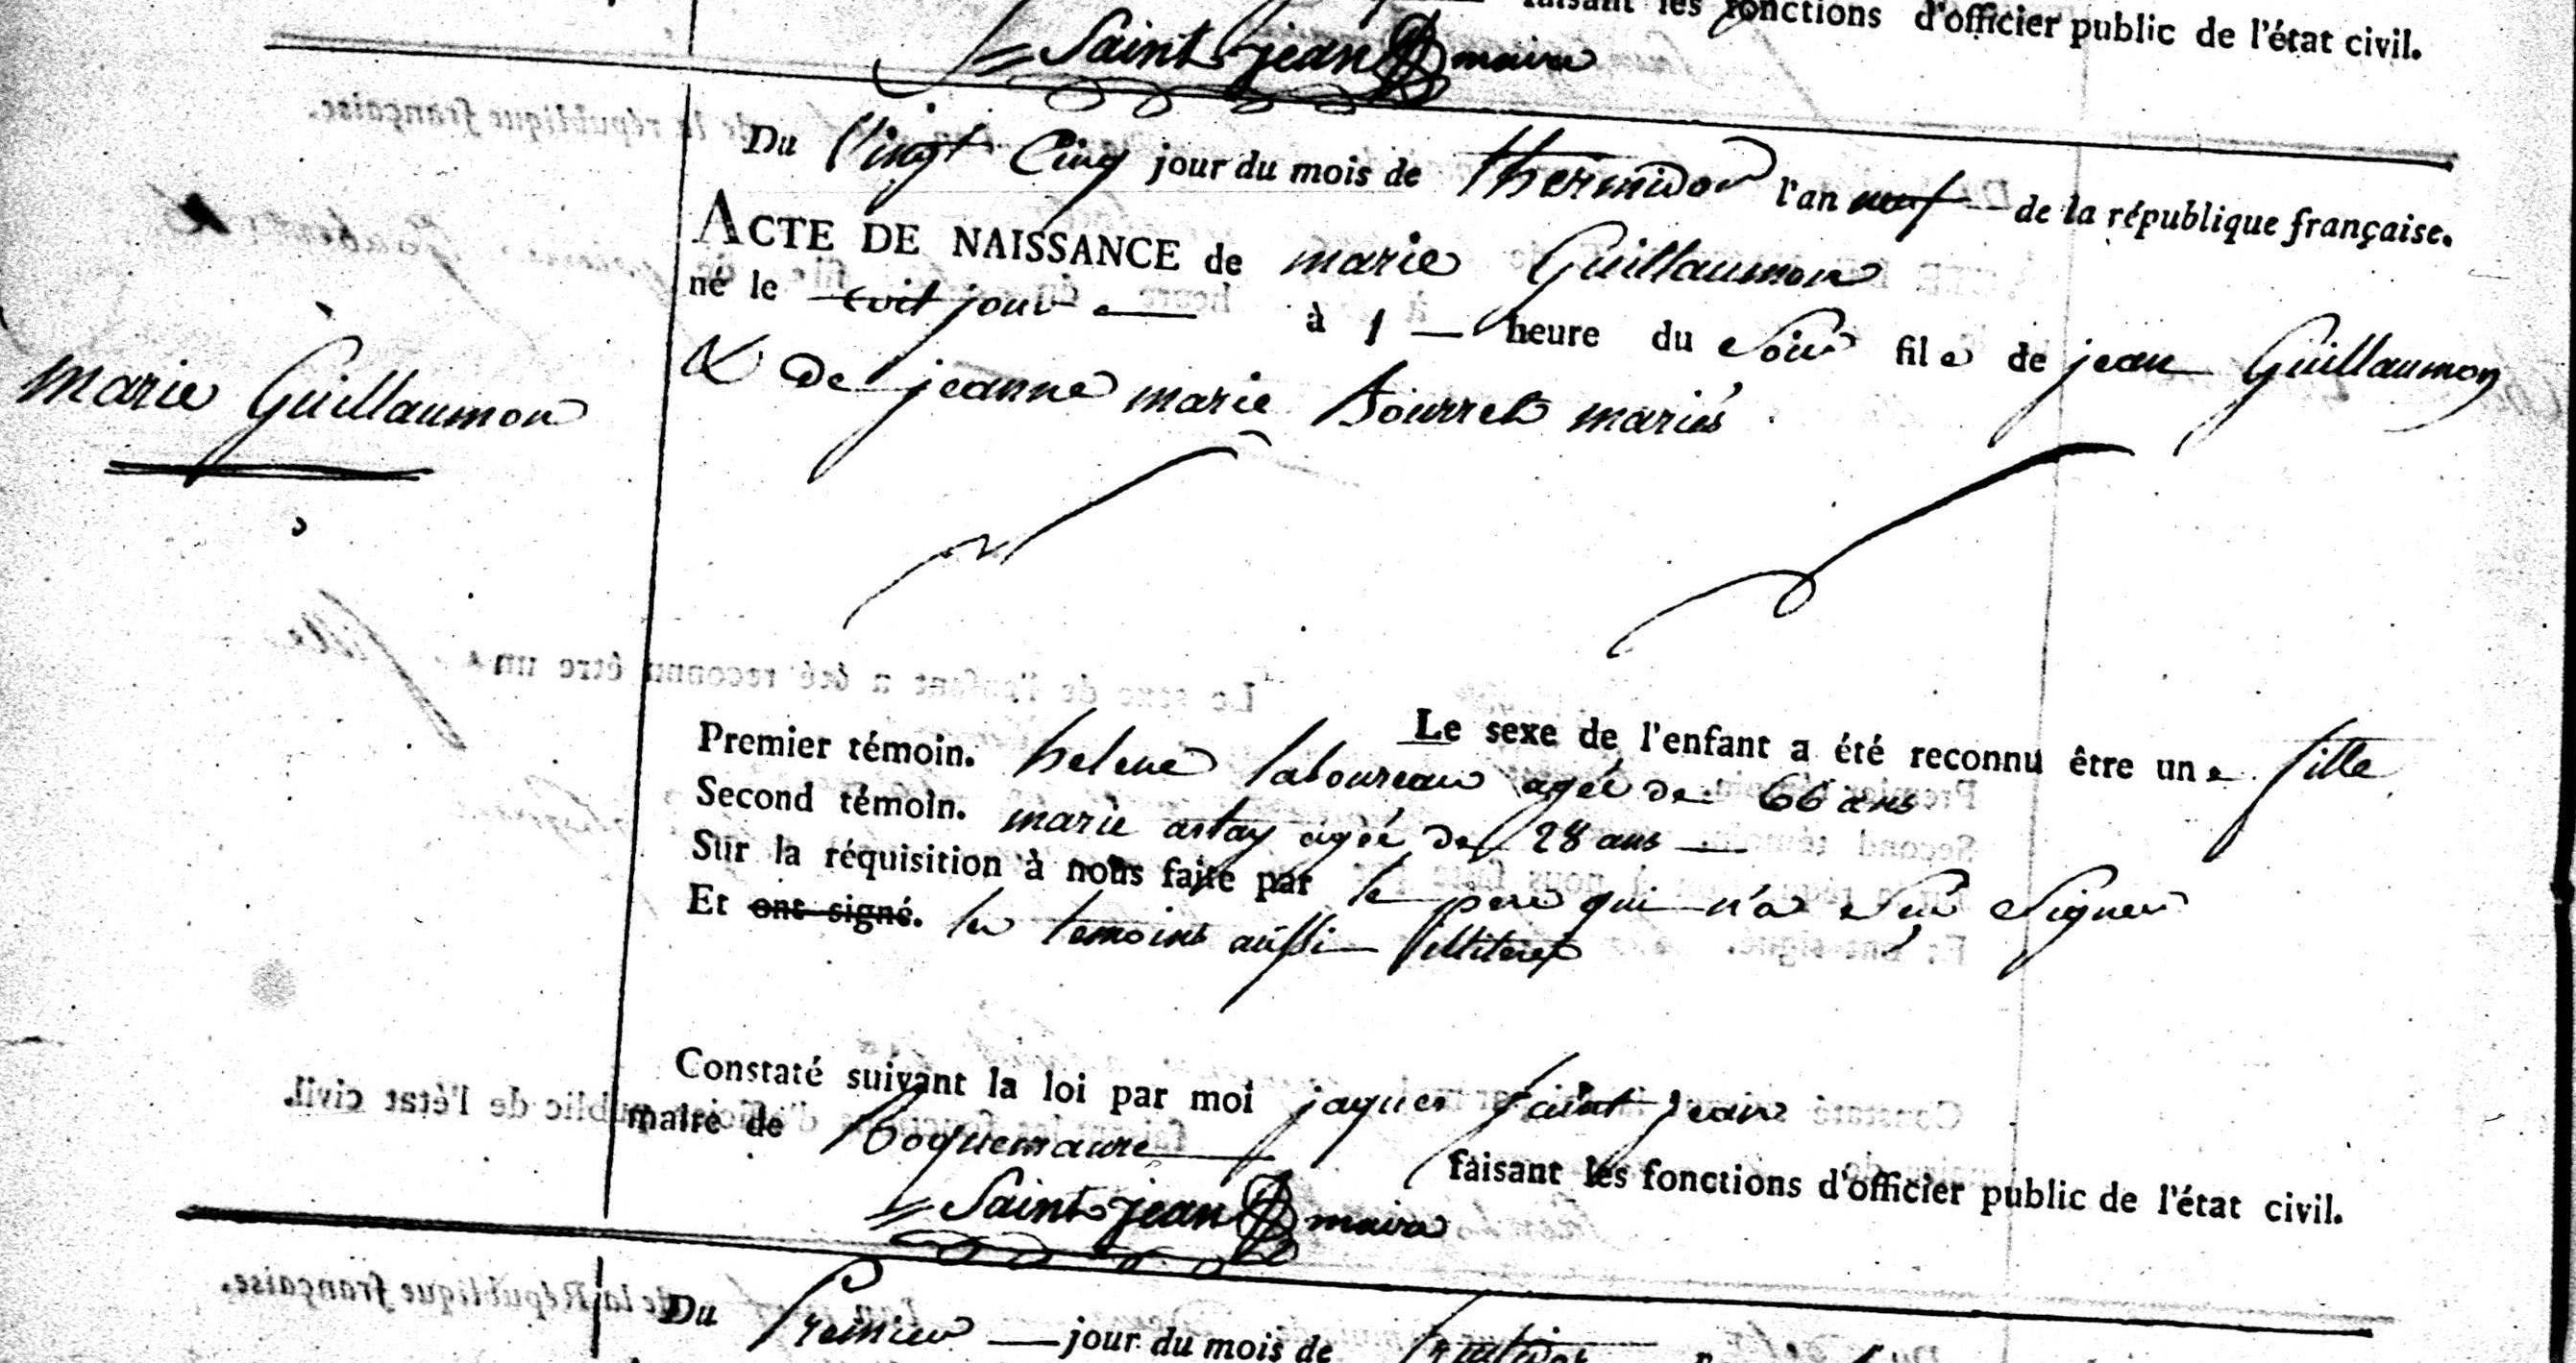 faisant les fonctions d'officier public de l'état civil.
Saint jean maire
Du Vingt Cinq jour du mois de thermidor l'an neuf de la république française.
ACTE DE NAISSANCE de marie Guillaumon
né le dit jour à 1 heure du soir file de jean Guillaumon
& de jeanne marie Bourret mariés
marie Guillaumon
Le sexe de l'enfant a été reconnu être une fille
Premier témoin. helene laboureau agée de 66 ans
Second témoin. marie astay agée de 28 ans
Sur la réquisition à nous faite par le pere qui n'a sçu signer
Et ont signé. les temoins aussi illiterés
Constaté suivant la loi par moi jaques saint jean
maire de Roquemaure faisant les fonctions d'officier public de l'état civil.
Saint jean maire
Du Premier jour du mois de fructidor